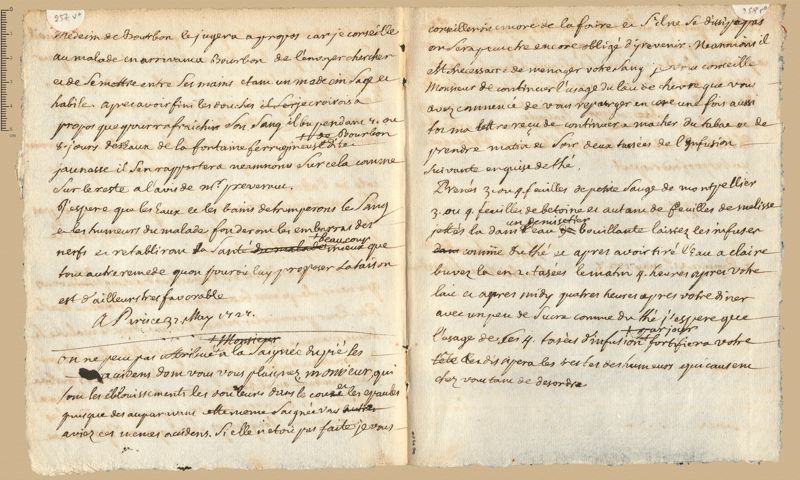 257 v°
medecin de Bourbon le jugera a propos car je conseille
au malade en arrivant a Bourbon de l'envoyer chercher
et de se mettre entre ses mains etant un medecin sage et
habile apres avoir fini les douches il
propos que pour rafraichir son sang il bu pendant ou
8. jours des Eaux de la fontaine ferrugineuse dite
+ de Bourbon
jaunasse il s'en rapportera neanmoins sur cela comme
sur le reste a l'avis de mr. prevenue.
J'espere que les Eaux et les bains detremperons le sang
et les humeurs du malade fonderons les embarras des
nerfs et retabliron la santé du malade mieux que
+ beaucoup
tout autre remede quon pouroit luy proposer La saison
est d'ailleurs tres favorable
A Paris ce 31 May 1727.
+ Monsieur
on ne peu pas attribué a la saignée du pié les
accidens dont vous vous plaignez monsieur, qui
sont les éblouissements les douleurs dans le et les epaules
puisque des auparavant cette meme saignée vous
aviez ces memes accidens. Si elle n'etoit pas faite je vous
258 r°
conseillerois encore de la faire et s'il ne se dissipe pas
on sera peut etre encore obligé d'y revenir. Neanmoins il
est necessaire de menager votre sang je vous conseille
Monsieur de continuer l'usage du lait de chevre que vous
avez commencé de vous repurger encore une fois aussi
tot ma lettre reçu de continuer a macher du tabac et de
prendre matin et soir deux tasses de l'infusion
suivante en guise de thé.
Prenés 3. ou 4. feuilles de petite sauge de montpellier
3. ou 4. feuilles de betoine et autant de feuilles de melisse
jettés la dans l'eau bouillante laissez les infuser
un demisetier
dans comme du thé et apres avoir tiré l'Eau a claire
buvez la en 2 tasées le matin 4. heures apres votre
lait et apres midy quatres heures apres votre diner
avec un peu de sucre comme du thé j'espere que
l'usage de ses 4. tasées d'infusion fortifiera votre
+ par jour
tête et dissipera les restes des humeurs qui causent
chez vous tant de desordre